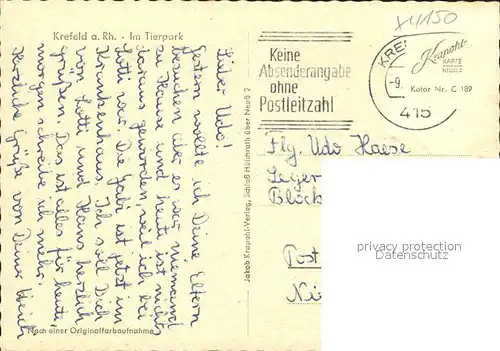 Krefeld a. Rh. · Im Tierpark
Lieber Udo!
Gestern wollte ich Deine Eltern
besuchen aber es war niemand
zu Hause und heute ist nichts
daraus geworden, weil ich bei
Lotti war. Die Gabi ist jetzt im
Krankenhaus. Ich soll Dich
von Lotti und Hans herzlich
grüßen. Das ist alles für heute,
morgen schreibe ich mehr.
Herzliche Grüße von Deiner
Nach einer Originalfarbaufnahme
Jakob Krapohl-Verlag, Schloß Hülchrath über Neuß 2
Keine
Absenderangabe
ohne
Postleitzahl
KRE
-9.
415
Krapohl
KARTE
Kolor Nr. C 189
Flg. Udo Haese
Leger
Block
Post
Ni
privacy protection
AnsichtskartenCenter